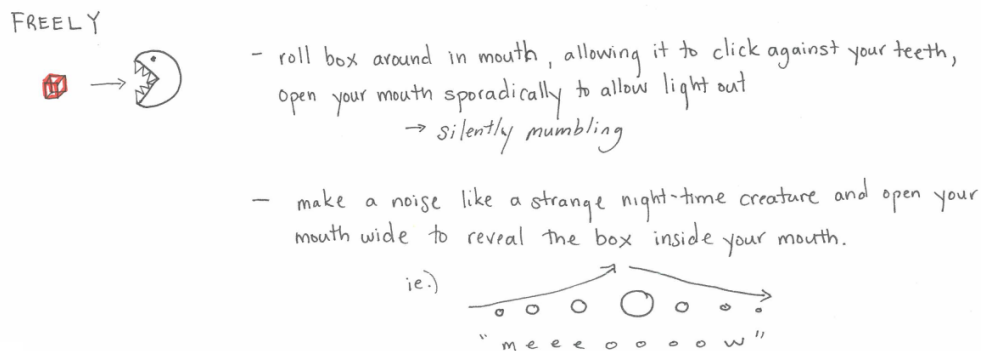 FREELY
- roll box around in mouth, allowing it to click against your teeth,
open your mouth sporadically to allow light out
→ silently mumbling
- make a noise like a strange night-time creature and open your
mouth wide to reveal the box inside your mouth.
ie.)
"m e e e o o o o w"